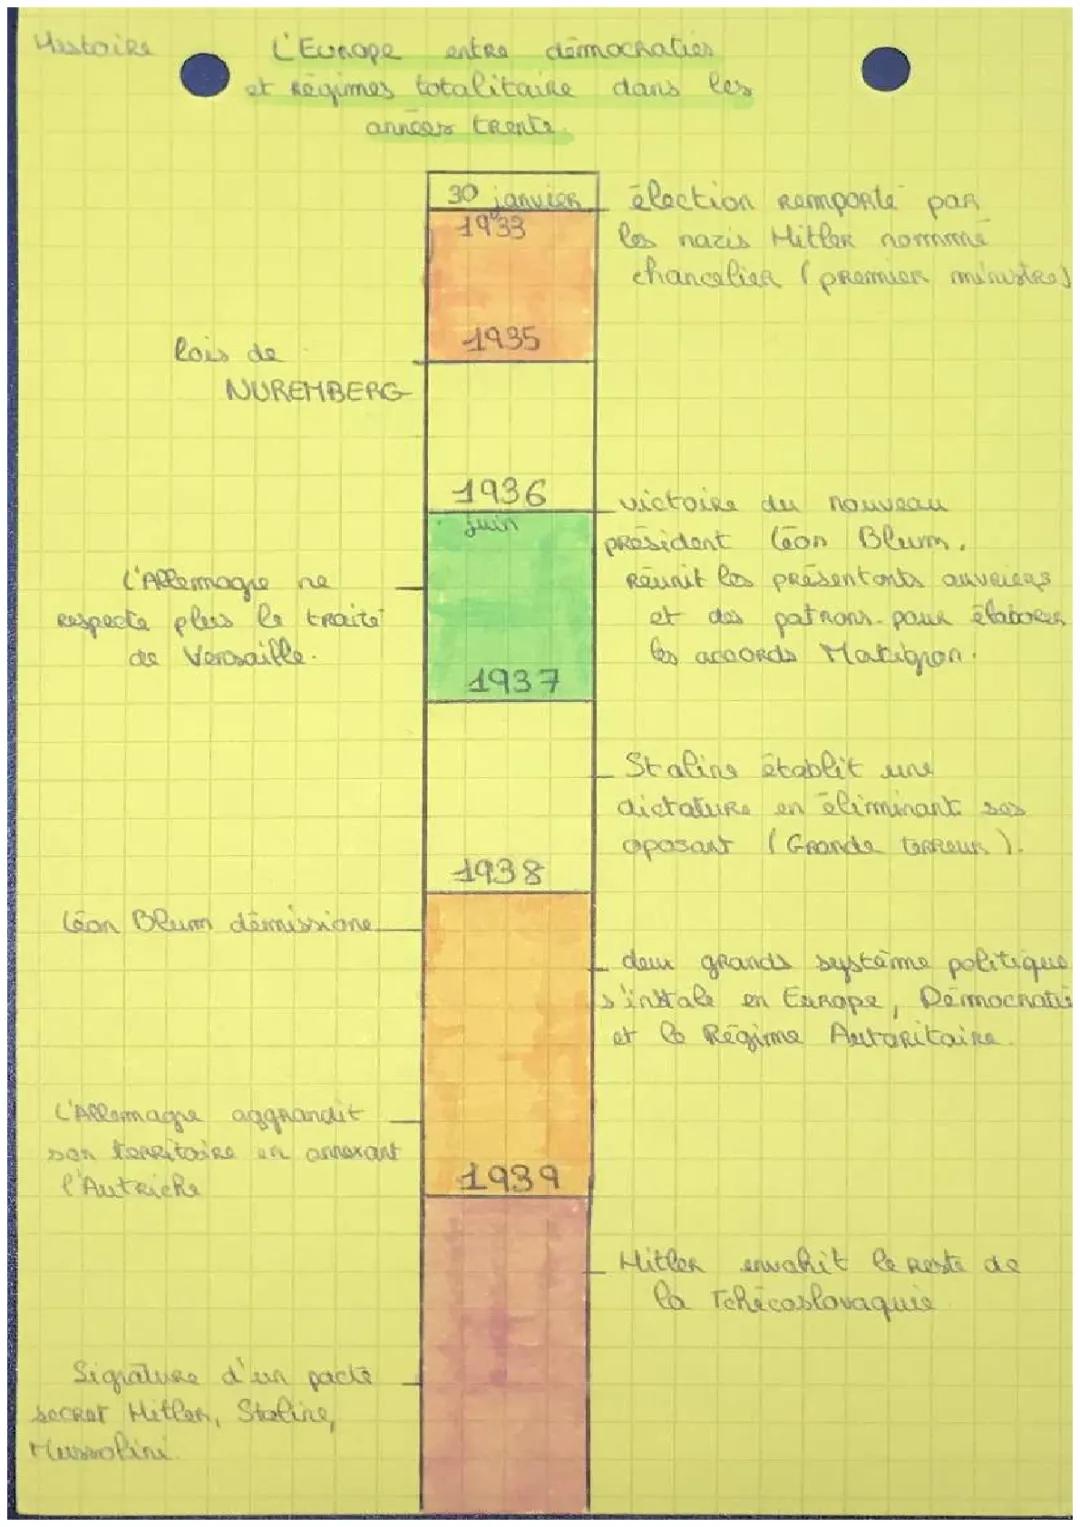 Histoire
L'Europe entre démocraties
et régimes totalitaire dans les
années trente.
30 janvier
1933
élection remporté par
les nazis Hitler nommé
chancelier (premier ministre)
1935
lois de
NUREMBERG
1936
juin
victoire du nouveau
président Léon Blum,
Réunit les présentants ouvriers
et des patrons pour élaborer
les accords Matignon.
L'Allemagne ne
respecte plus le traité
de Versaille.
1937
Staline établit une
dictature en éliminant ses
oposant (Grande terreur).
1938
Léon Blum démissione
deux grands système politique
s'installe en Europe, Démocratie
et le Régime Autoritaire.
L'Allemagne aggrandit
son territoire en annexant
l'Autriche
1939
Hitler envahit le reste de
la Tchécoslovaquie
Signature d'un pacte
secret Hitler, Staline,
Mussolini.